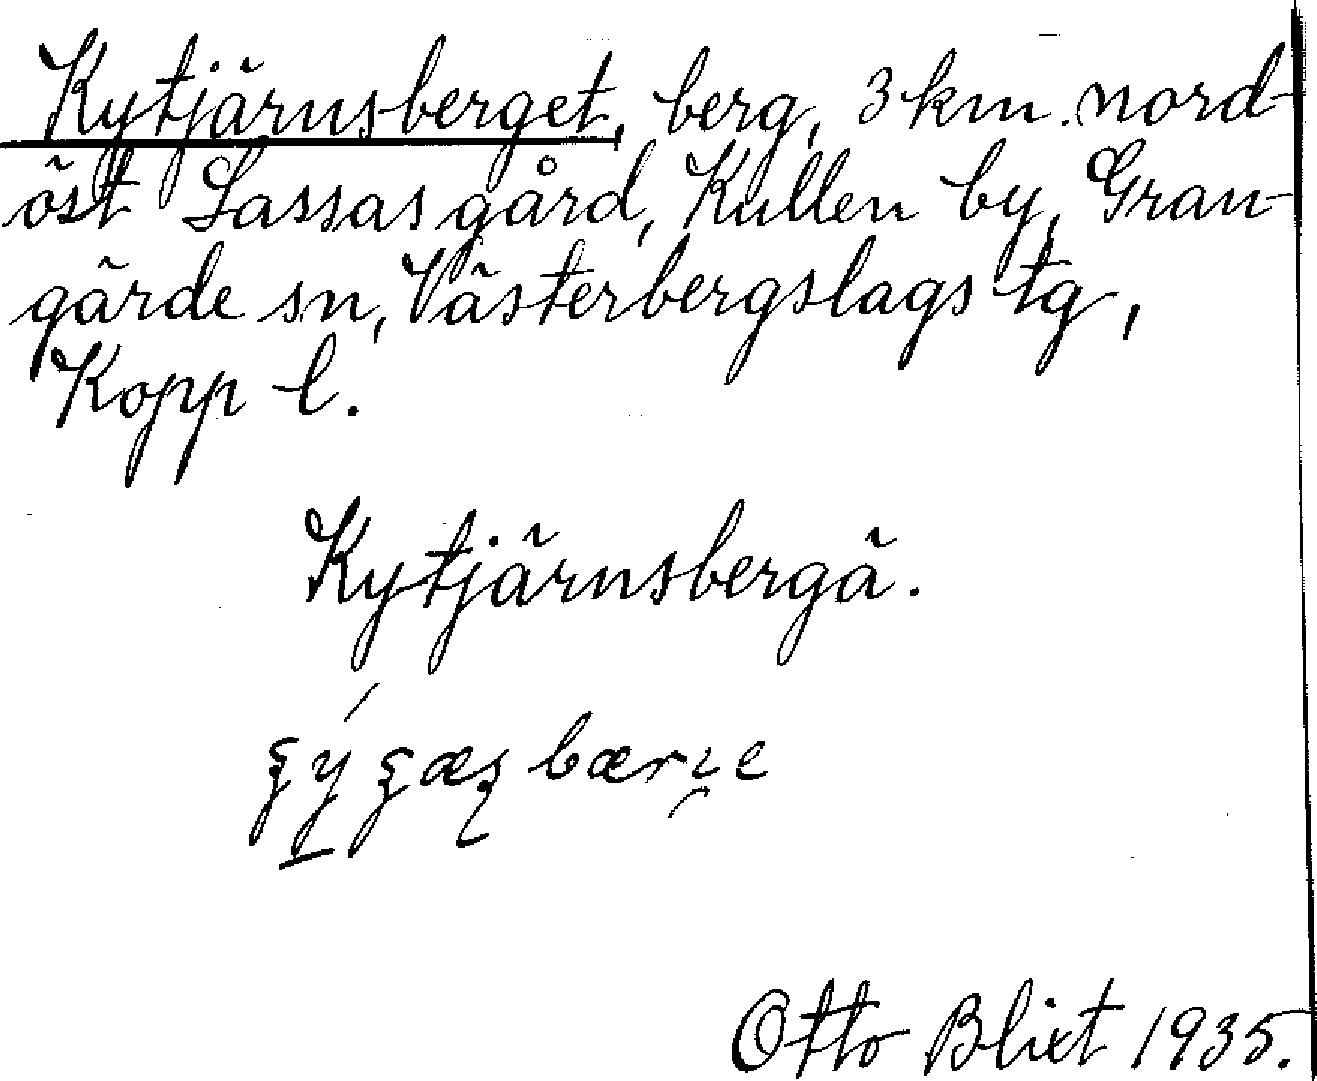 Kytjärnsberget, berg, 3 km. nord-
öst Lassas gård, Kullen by, Gran-
gärde sn, Västerbergslags tg,
Kopp l.
Kytjärnsbergä.
Otto Blixt 1935.